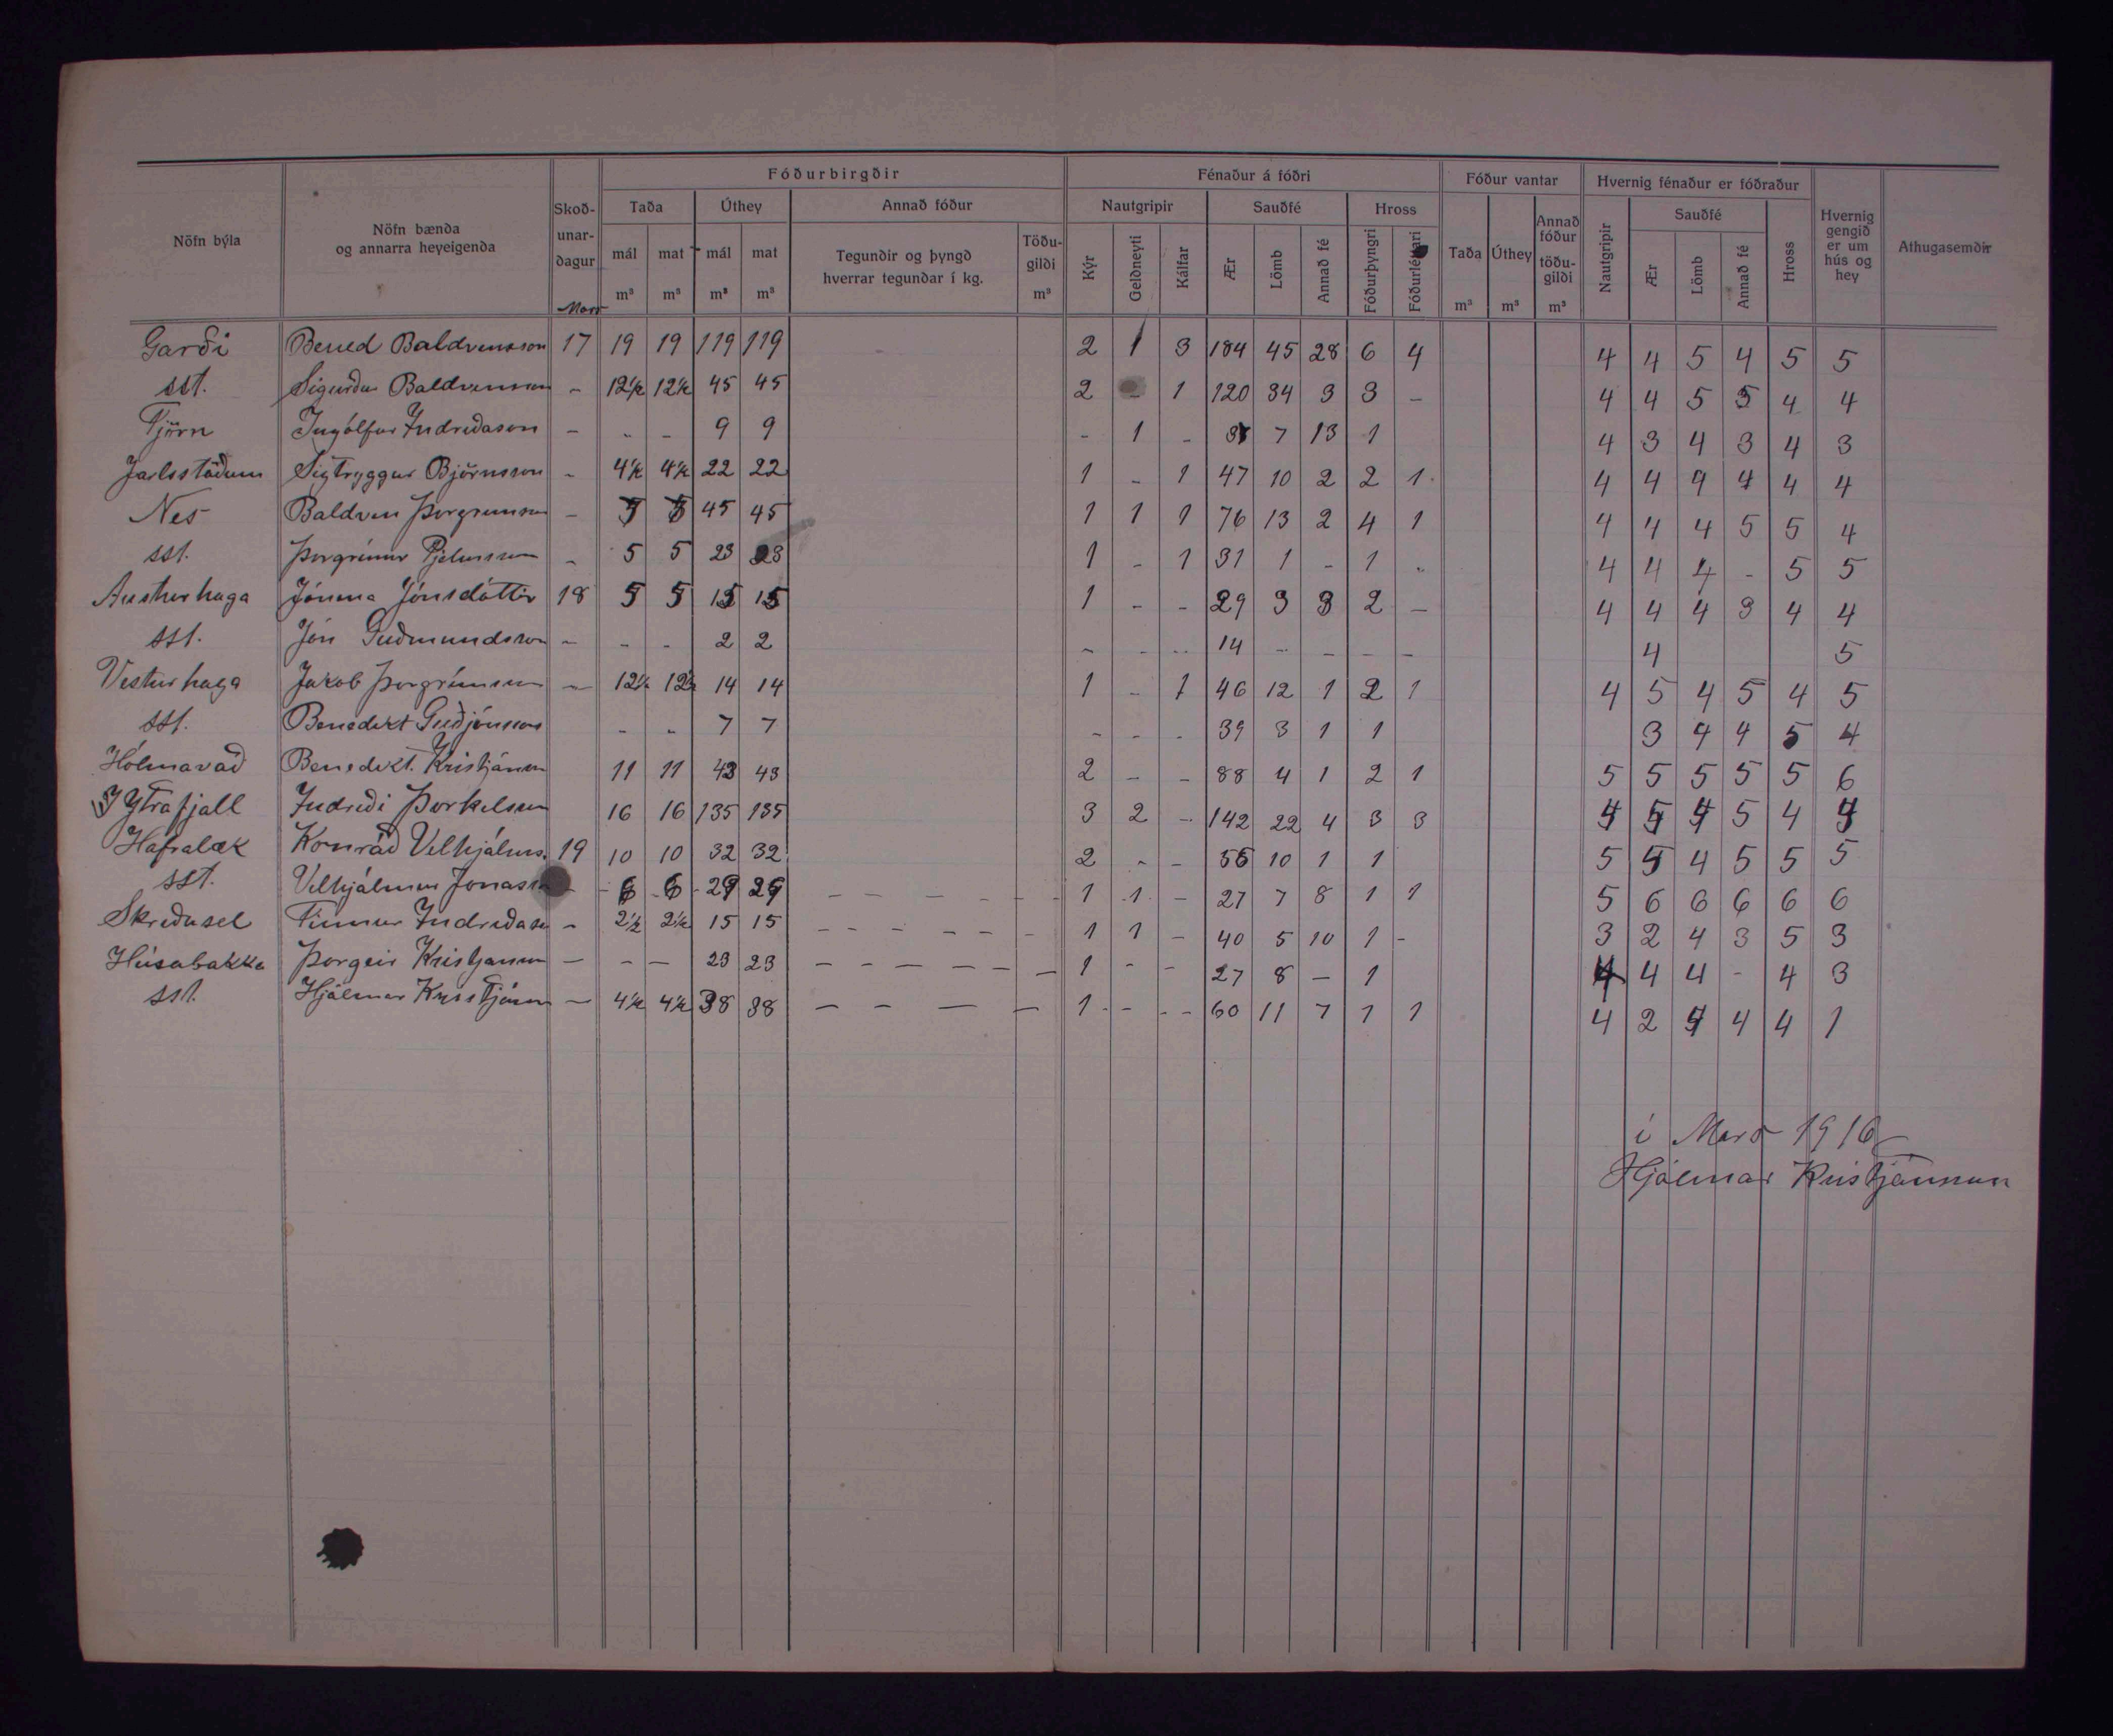 Fóðurbirgðir Fénaður á fóðri Fóður vantar Hvernig fénaður er fóðraður
Nöfn býla Nöfn bænda og annarra heyeigenda Skoðunardagur Taða Úthey Annað fóður Nautgripir Sauðfé Hross Taða Úthey Annað fóður töðugildi Nautgripir Sauðfé Hross Hvernig gengið er um hús og hey Athugasemdir
mál mat mál mat Tegundir og þyngd hverrar tegundar í kg. Töðugildi Kýr Geldneyti Kálfar Ær Lömb Annað fé Fóðurþyngri Fóðurléttari Ær Lömb Annað fé
m³ m³ m³ m³ m³ m³ m³ m³
Mars
Garði Bened Baldvinsson 17 19 19 119 119 2 1 3 184 45 28 6 4 4 4 5 4 5 5
sst. Sigurður Baldvinsson - 12½ 12½ 45 45 2 - 1 120 34 3 3 - 4 4 5 5 4 4
Tjörn Ingólfur Indriðason - - - 9 9 - 1 - 7 13 1 4 3 4 3 4 3
Jarlsstöðum Sigtryggur Björnsson - 4½ 4½ 22 22 1 - 1 47 10 2 2 1 4 4 4 4 4 4
Nes Baldvin Þorgrímsson - 5 5 45 45 1 1 1 76 13 2 4 1 4 4 4 5 5 4
sst. Þorgrímur Pjetursson - 5 5 23 23 1 - 1 31 1 - 1 - 4 4 4 - 5 5
Austurhaga Jónína Jónsdóttir 18 5 5 15 15 1 - - 29 3 3 2 - 4 4 4 3 4 4
sst. Jón Guðmundsson - - - 2 2 - - - 14 - - - - 4 5
Vesturhaga Jakob Þorgrímsson - 12½ 12½ 14 14 1 - 1 46 12 1 2 1 4 5 4 5 4 5
sst. Benedikt Guðjónsson - - 7 7 - - - 39 3 1 1 3 4 4 5 4
Hólmavað Benedikt Kristjánsson 11 11 43 43 2 - - 88 4 1 2 1 5 5 5 5 5 6
Ytrafjall Indriði Þorkelsson 16 16 135 135 3 2 - 142 22 4 3 3 5 4
Hafralæk Konráð Vilhjálms. 19 10 10 32 32 2 - - 56 10 1 1 5 5 4 5 5 5
sst. Vilhjálmur Jónass - 6 6 29 29 - - - - - - 1 1 - 27 7 8 1 1 5 6 6 6 6 6
Skriðusel Finnur Indriðason - 2½ 2½ 15 15 - - - - - - 1 1 - 40 5 10 1 - 3 2 4 3 5 3
Húsabakka Þorgeir Kristjánsson - - - 23 23 - - - - - - 1 - - 27 8 - 1 4 4 4 - 4 3
sst. Hjálmar Kristjánsson - 4½ 4½ 38 38 - - - - 1 - - - 60 11 7 1 1 4 2 4 4 4 1
í Mars 1916
Hjálmar Kristjánsson